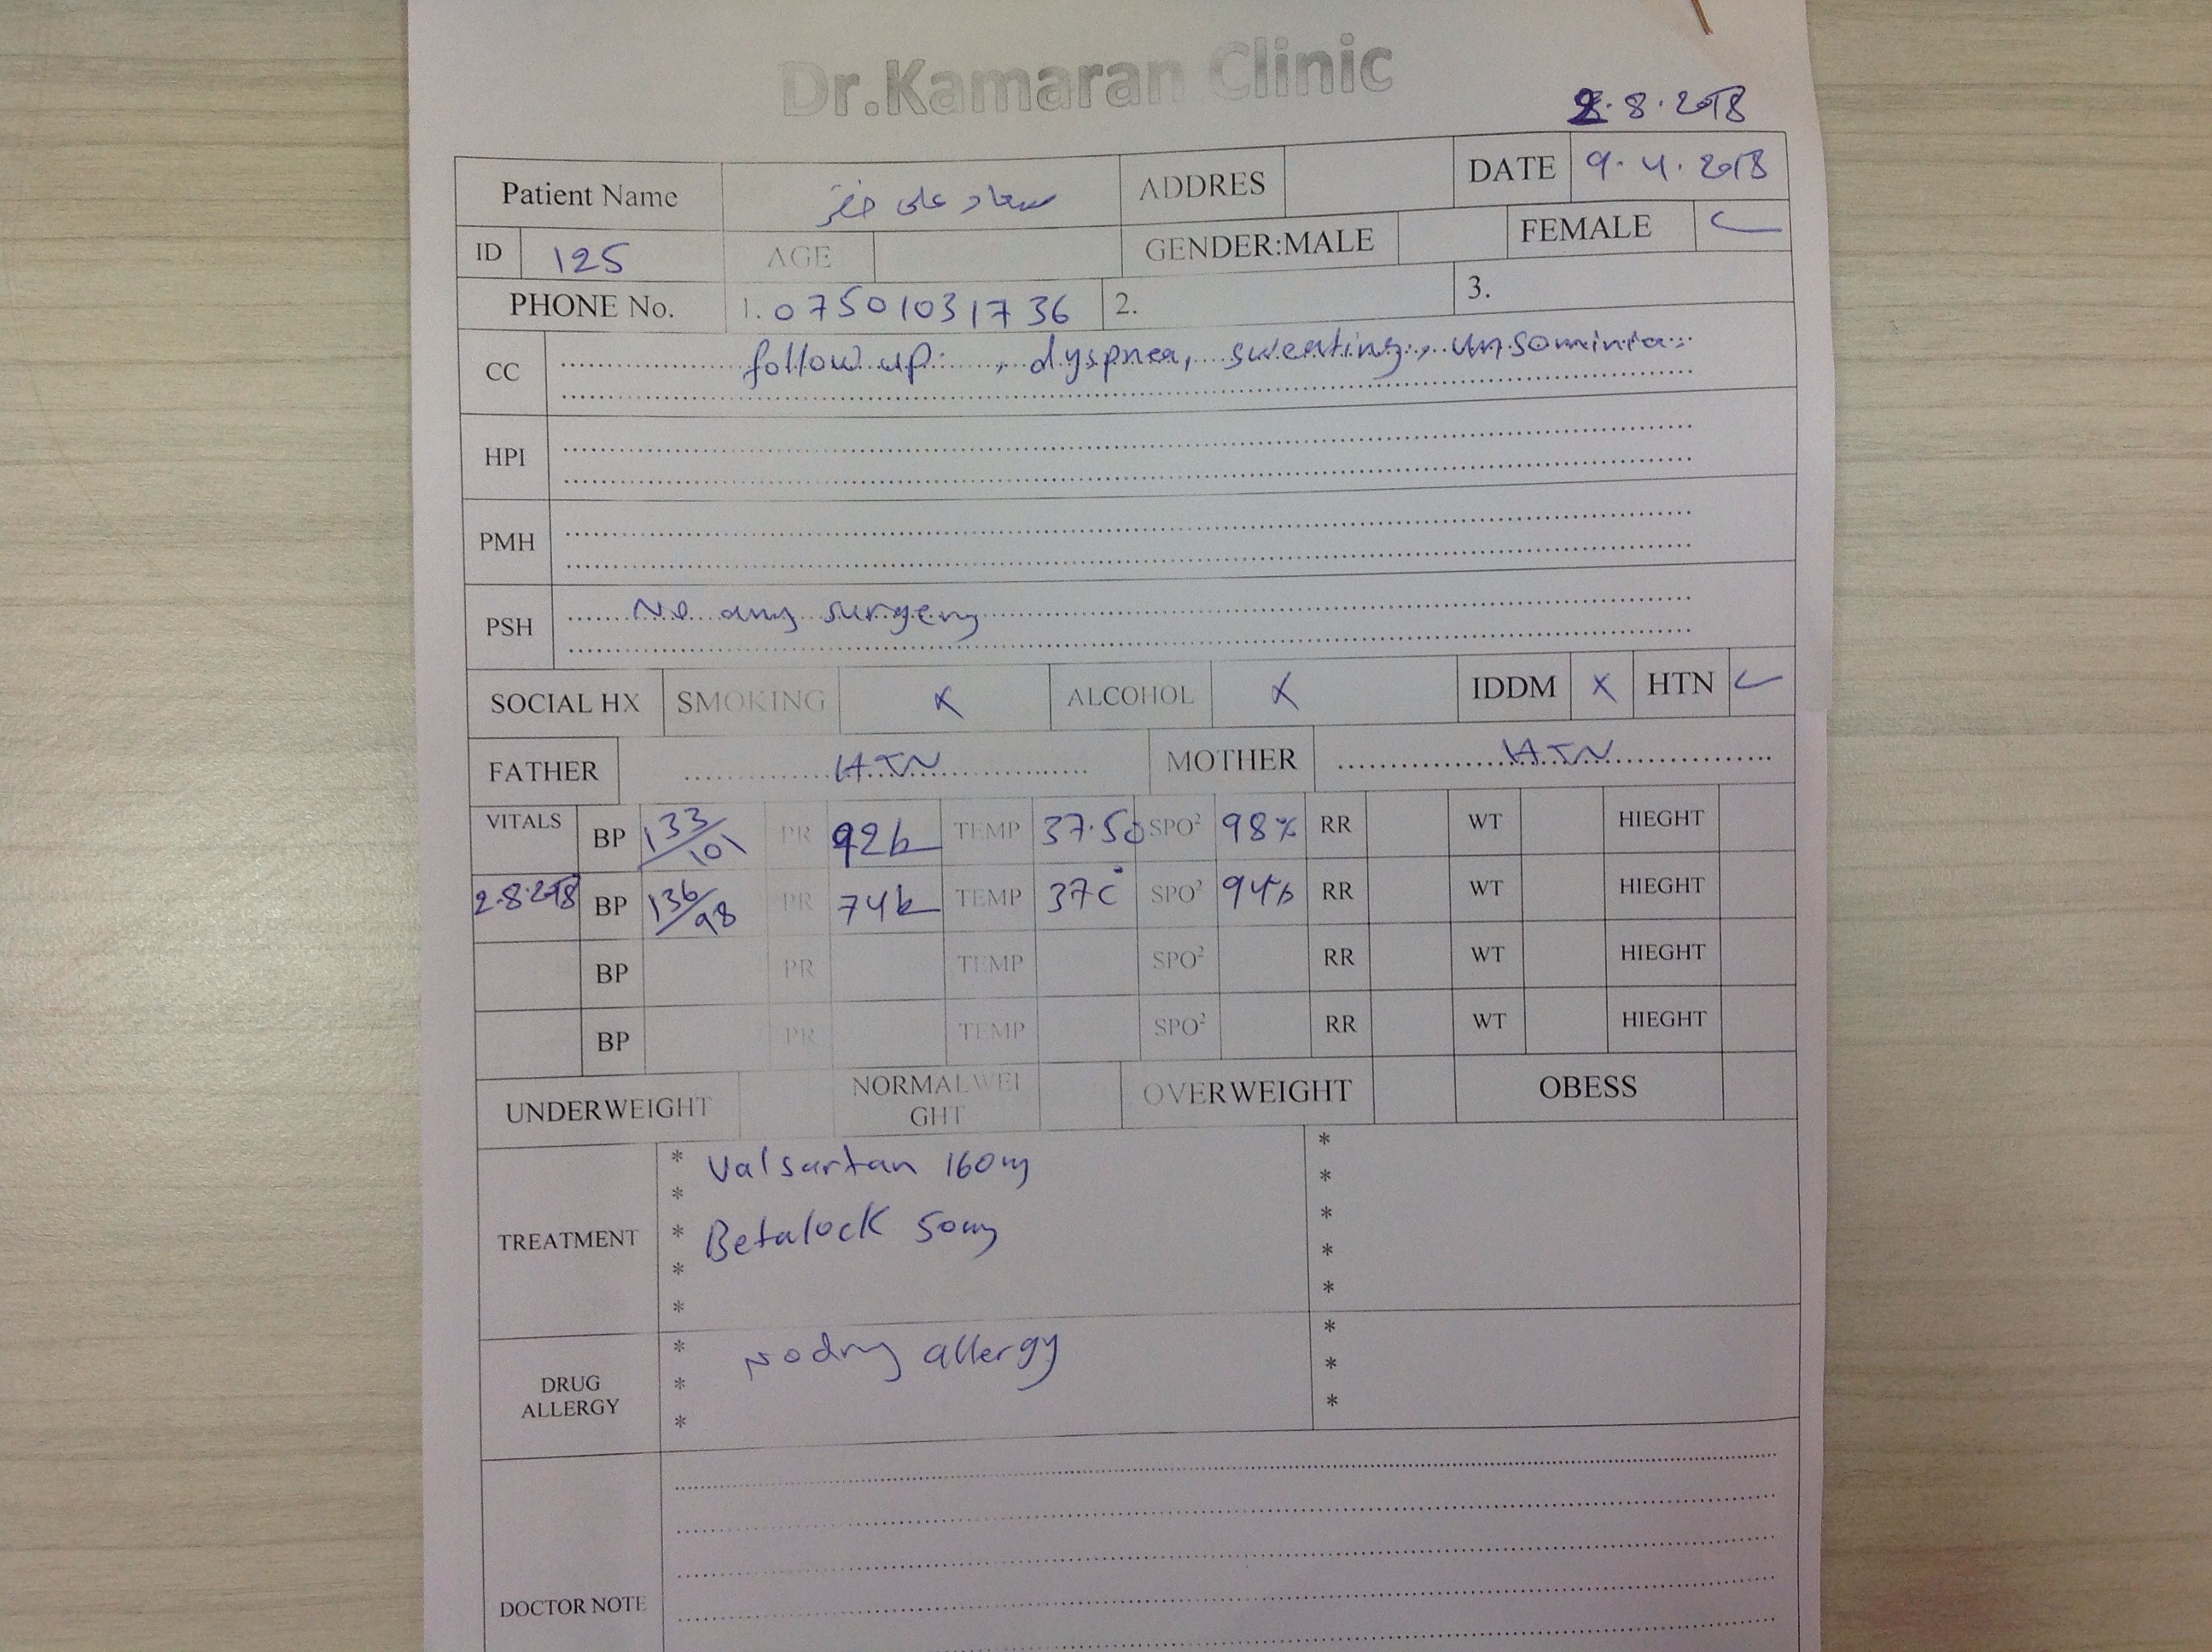 Dr.Kamaran Clinic
2.8.2018
Patient Name سعاد علی خضر ADDRES DATE 9.4.2018
ID 125 AGE GENDER:MALE FEMALE ✓
PHONE No. 1. 07501031736 2. 3.
CC follow up , dyspnea, sweating, unsominia
HPI
PMH
PSH No any surgery
SOCIAL HX SMOKING x ALCOHOL x IDDM x HTN ✓
FATHER HTN MOTHER HTN
VITALS BP 133/101 PR 92b TEMP 37.5c SPO² 98% RR WT HIEGHT
2.8.2018 BP 136/98 PR 74b TEMP 37c° SPO² 94% RR WT HIEGHT
BP PR TEMP SPO² RR WT HIEGHT
BP PR TEMP SPO² RR WT HIEGHT
UNDERWEIGHT NORMALWEIGHT OVERWEIGHT OBESS
TREATMENT
* Valsartan 160mg *
* *
* Betalock 50mg *
* *
* *
DRUG ALLERGY
* No drug allergy *
* *
* *
DOCTOR NOTE